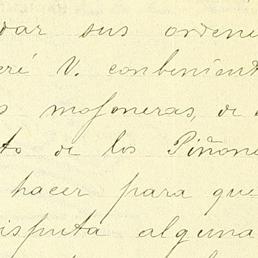 dar sus ordene
eré V. conbenient
s mofoneras, de
to de los Piñone
hacer para que
isputa alguna